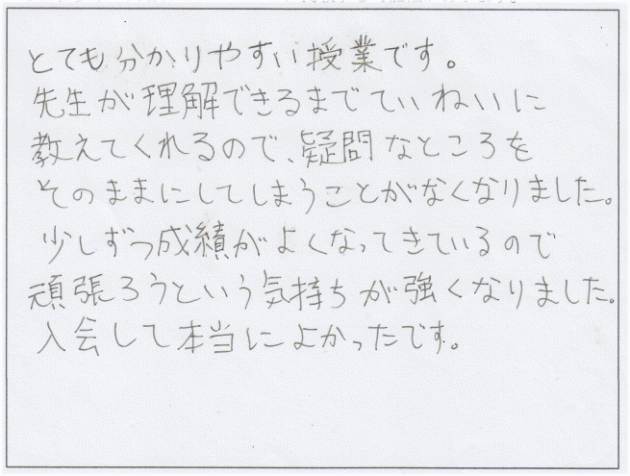 とても分かりやすい授業です。
先生が理解できるまでていねいに
教えてくれるので、疑問なところを
そのままにしてしまうことがなくなりました。
少しずつ成績がよくなってきているので
頑張ろうという気持ちが強くなりました。
入会して本当によかったです。